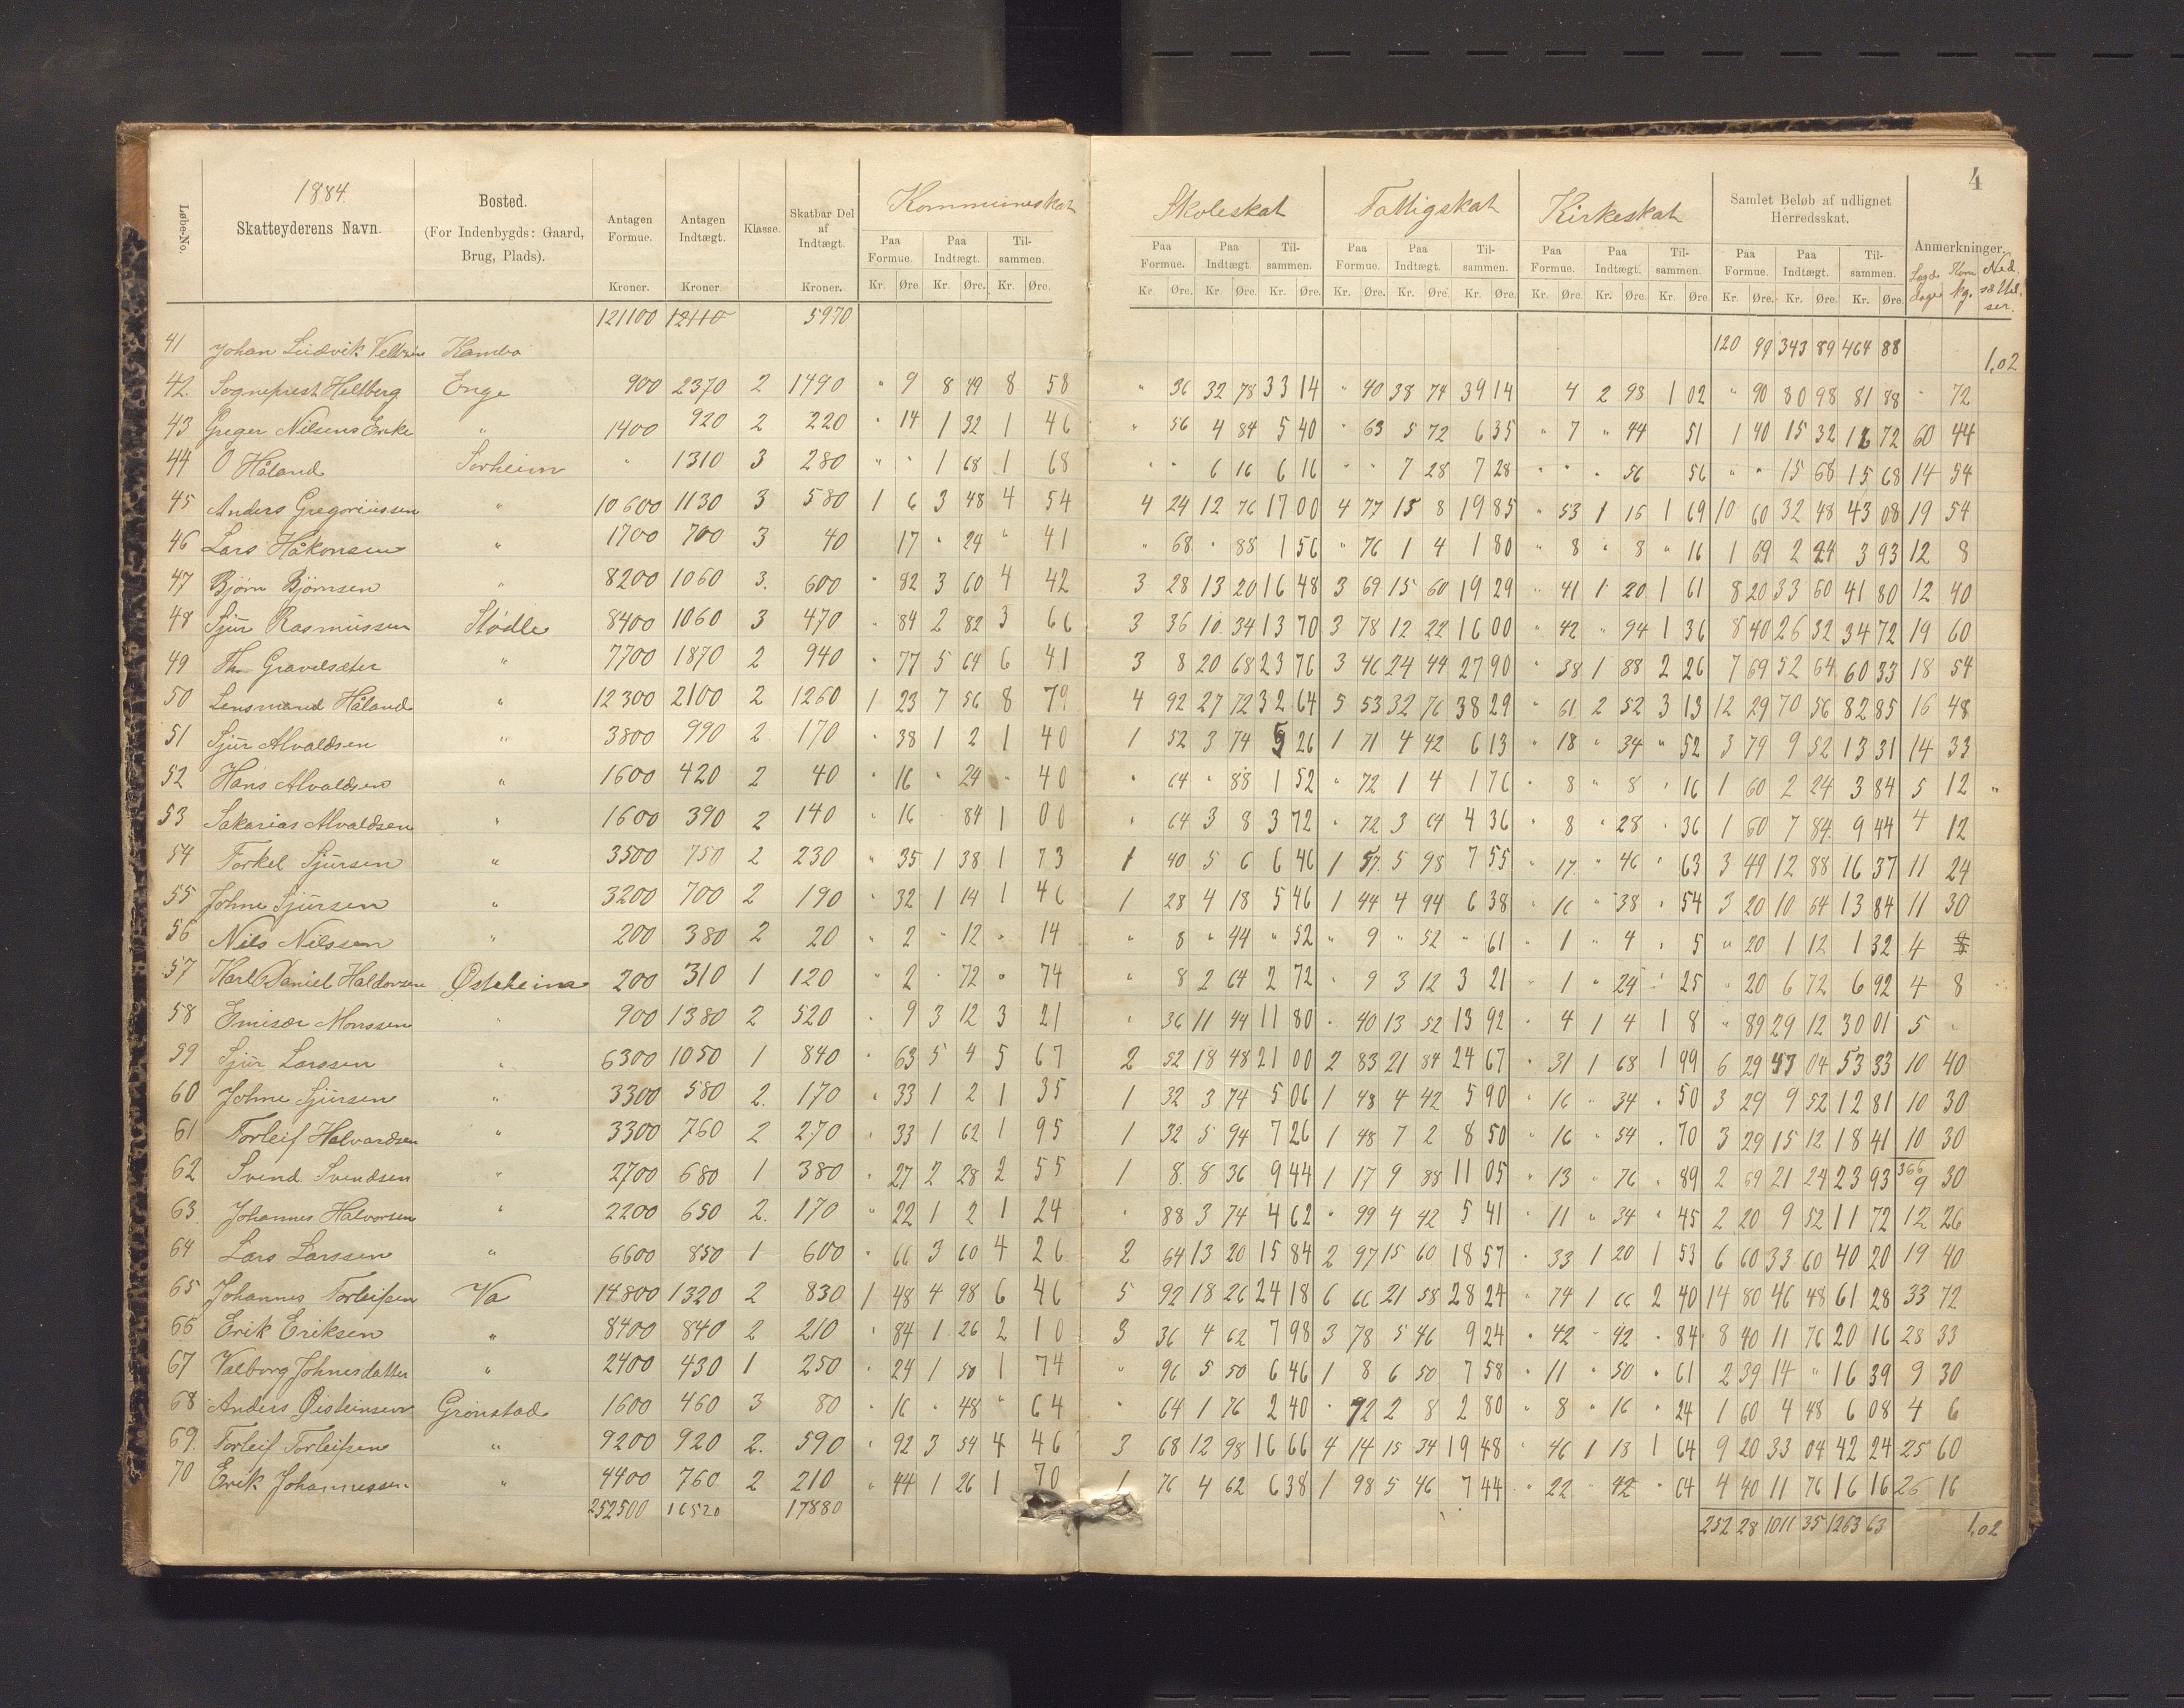 4
1884.
Løbe-No.
Skatteyderens Navn.
Bosted.
(For Indenbygds: Gaard, Brug, Plads).
Antagen Formue.
Antagen Indtægt.
Klasse.
Skatbar Del af Indtægt.
Kommuneskat
Skoleskat
Fattigskat
Kirkeskat
Samlet Beløb af udlignet Herredsskat.
Anmerkninger.
Paa Formue. Paa Indtægt. Tilsammen. Paa Formue. Paa Indtægt. Tilsammen. Paa Formue. Paa Indtægt. Tilsammen. Paa Formue. Paa Indtægt. Tilsammen. Paa Formue. Paa Indtægt. Tilsammen.
Korn kg.
Kroner. Kroner Kroner. Kr. Øre. Kr. Øre. Kr. Øre. Kr. Øre. Kr. Øre. Kr. Øre. Kr. Øre. Kr. Øre. Kr. Øre. Kr. Øre. Kr. Øre. Kr. Øre Kr. Øre. Kr. Øre. Kr. Øre.
121100 12110 5970
41 Johan Ludvik Hambo 120 99 343 89 464 88 1,02
42. Sogneprest Heltberg Enge 900 2370 2 1490 " 9 8 49 8 58 " 36 32 78 33 14 " 40 38 74 39 14 4 2 98 1 02 " 90 80 98 81 88 " 72
43 Greger Nilsens Enke " 1400 920 2 220 " 14 1 32 1 46 " 56 4 84 5 40 " 63 5 72 6 35 " 7 " 44 51 1 40 15 32 16 72 60 44
44 O Håland Sørheim " 1310 3 280 " " 1 68 1 68 " " 6 16 6 16 " " 7 28 7 28 " " " 56 56 " " 15 68 15 68 14 54
45 Anders Gregoriussen " 10600 1130 3 580 1 6 3 48 4 54 4 24 12 76 17 00 4 77 15 8 19 85 " 53 1 16 1 69 10 60 32 48 43 08 19 54
46 Lars Håkonsen " 1700 700 3 40 17 " 24 " 41 " 68 " 88 1 56 " 76 1 4 1 80 " 8 " 8 " 16 1 69 2 24 3 93 12 8
47 Bjørn Bjørnsen " 8200 1060 3. 600 " 82 3 60 4 42 3 28 13 20 16 48 3 69 15 60 19 29 " 41 1 20 1 61 8 20 33 60 41 80 12 40
48 Sjur Rasmussen Stødle 8400 1060 3 470 " 84 2 82 3 66 3 36 10 34 13 70 3 78 12 22 16 00 " 42 " 94 1 36 8 40 26 32 34 72 19 60
49 Th. Gravelsæter " 7700 1870 2 940 " 77 5 64 6 41 3 8 20 68 23 76 3 46 24 44 27 90 " 38 1 88 2 26 7 69 52 64 60 33 18 54
50 Lensmand Håland " 12300 2100 2 1260 1 23 7 56 8 79 4 92 27 72 32 64 5 53 32 76 38 29 " 61 2 52 3 13 12 29 70 56 82 85 16 48
51 Sjur Alvaldsen " 3800 990 2 170 " 38 1 2 1 40 1 52 3 74 5 26 1 71 4 42 6 13 " 18 " 34 " 52 3 79 9 52 13 31 14 33
52 Hans Alvaldsen " 1600 420 2 40 " 16 " 24 " 40 " 64 " 88 1 52 " 72 1 4 1 76 " 8 " 8 " 16 1 60 2 24 3 84 5 12 "
53 Sakarias Alvaldsen " 1600 390 2 140 " 16 84 1 00 " 64 3 8 3 72 " 72 3 64 4 36 " 8 " 28 " 36 1 60 7 84 9 44 4 12
54 Torkel Sjursen " 3500 750 2 230 " 35 1 38 1 73 1 40 5 6 6 46 1 57 5 98 7 55 " 17 " 46 " 63 3 49 12 88 16 37 11 24
55 Johne Sjursen " 3200 700 2 190 " 32 1 14 1 46 1 28 4 18 5 46 1 44 4 94 6 38 " 16 " 38 " 54 3 20 10 64 13 84 11 30
56 Nils Nilssen " 200 380 2 20 " 2 " 12 " 14 " 8 " 44 " 52 " 9 " 52 " 61 " 1 " 4 " 5 " 20 1 12 1 32 4
57 Karl Daniel Haldorsen Østeheim 200 310 1 120 " 2 " 72 " 74 " 8 2 64 2 72 " 9 3 12 3 21 " 1 " 24 " 25 " 20 6 72 6 92 4 8
58 Emisær Monssen " 900 1380 2 520 " 9 3 12 3 21 " 36 11 44 11 80 " 40 13 52 13 92 " 4 1 4 1 8 " 89 29 12 30 01 5 "
59 Sjur Larssen " 6300 1050 1 840 " 63 5 4 5 67 2 52 18 48 21 00 2 83 21 84 24 67 " 31 1 68 1 99 6 29 47 04 53 33 10 40
60 Johne Sjursen " 3300 580 2. 170 " 33 1 2 1 35 1 32 3 74 5 06 1 48 4 42 5 90 " 16 " 34 " 50 3 29 9 52 12 81 10 30
61 Torleif Halvardsen " 3300 760 2 270 " 33 1 62 1 95 1 32 5 94 7 26 1 48 7 2 8 50 " 16 " 54 " 70 3 29 15 12 18 41 10 30
62 Svend Svendsen " 2700 680 1 380 " 27 2 28 2 55 1 8 8 36 9 44 1 17 9 88 11 05 " 13 " 76 " 89 2 69 21 24 23 93 366 9 30
63 Johannes Halvorsen " 2200 650 2. 170 " 22 1 2 1 24 " 88 3 74 4 62 " 99 4 42 5 41 " 11 " 34 " 45 2 20 9 52 11 72 12 26
64 Lars Larssen " 6600 850 1 600 " 66 3 60 4 26 2 64 13 20 15 84 2 97 15 60 18 57 " 33 1 20 1 53 6 60 33 60 40 20 19 40
65 Johannes Torleifsen Va 14800 1320 2 830 1 48 4 98 6 46 5 92 18 26 24 18 6 66 21 58 28 24 " 74 1 66 2 40 14 80 46 48 61 28 33 72
66 Erik Eriksen " 8400 840 2 210 " 84 1 26 2 10 3 36 4 62 7 98 3 78 5 46 9 24 " 42 " 42 " 84 8 40 11 76 20 16 28 33
67 Valborg Johnesdatter " 2400 430 1 250 " 24 1 50 1 74 " 96 5 50 6 46 1 8 6 50 7 58 " 11 " 50 " 61 2 39 14 " 16 39 9 30
68 Anders Øisteinsen Grønstad 1600 460 3 80 " 16 " 48 " 64 " 64 1 76 2 40 " 72 2 8 2 80 " 8 " 16 " 24 1 60 4 48 6 08 4 6
69. Torleif Torleifsen " 9200 920 2. 590 " 92 3 54 4 46 3 68 12 98 16 66 4 14 15 34 19 48 " 46 1 18 1 64 9 20 33 04 42 24 25 60
70 Erik Johannessen " 4400 760 2 210 " 44 1 26 1 70 1 76 4 62 6 38 1 98 5 46 7 44 " 22 " 42 " 64 4 40 11 76 16 16 26 16
252500 16520 17880 252 28 1011 35 1263 63 1,02